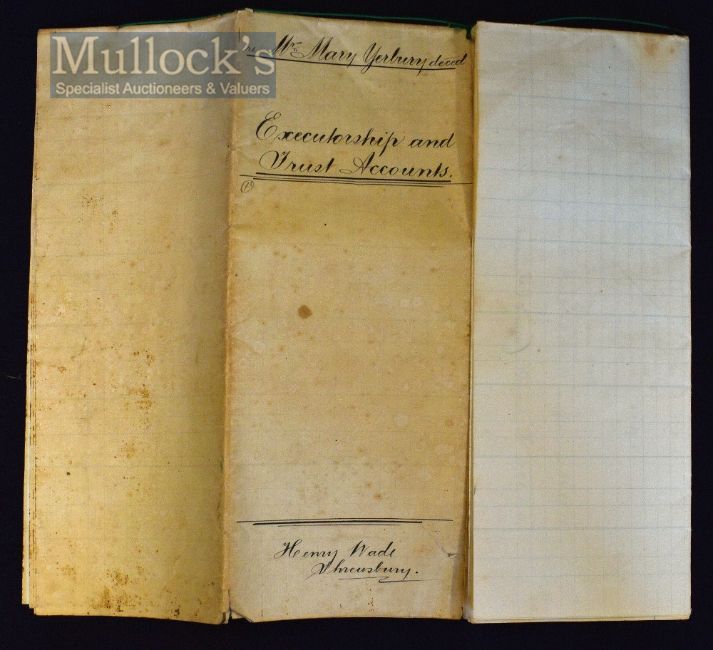 Mullock's
Specialist Auctioneers & Valuers
Mrs Mary Yerbury deced
Executorship and
Trust Accounts.
Henry Wade
Shrewsbury.